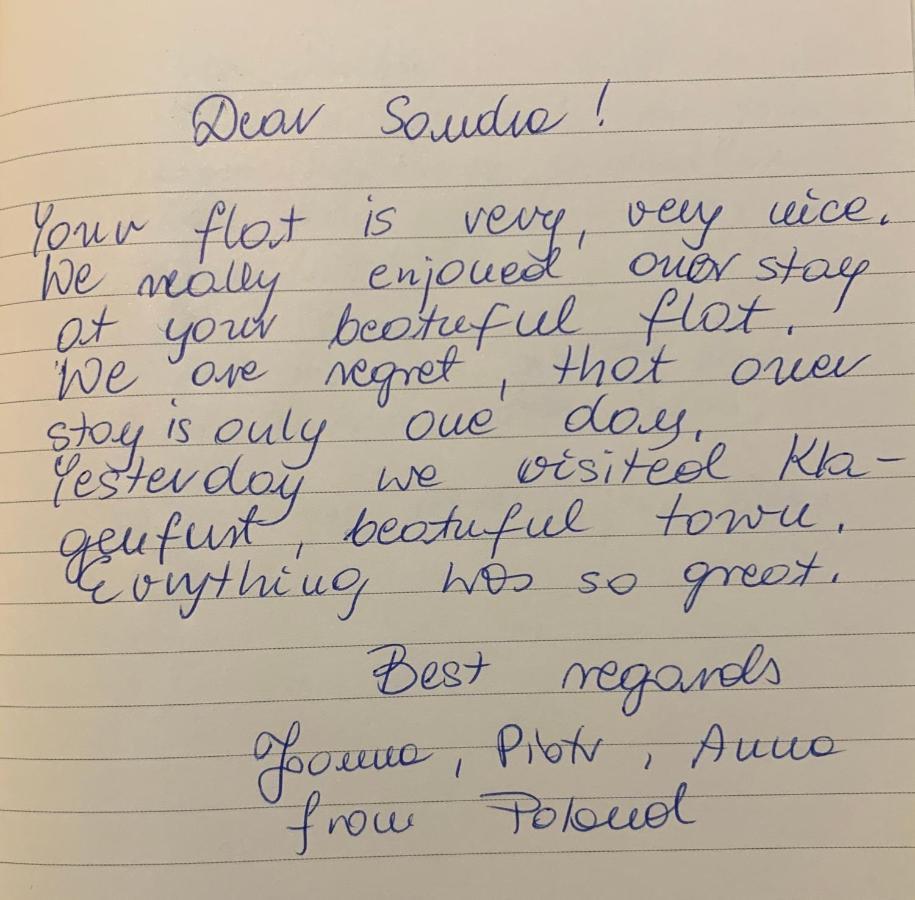 Dear Sandra!
Your flat is very, very nice.
We really enjoued ouer stay
at your beatuful flat.
We are regret, that ouer
stay is only one day.
Yesterday we visited Kla-
genfurt, beatuful town.
Evrything was so great.
Best regards
Joanna, Piotr, Anna
from Poland